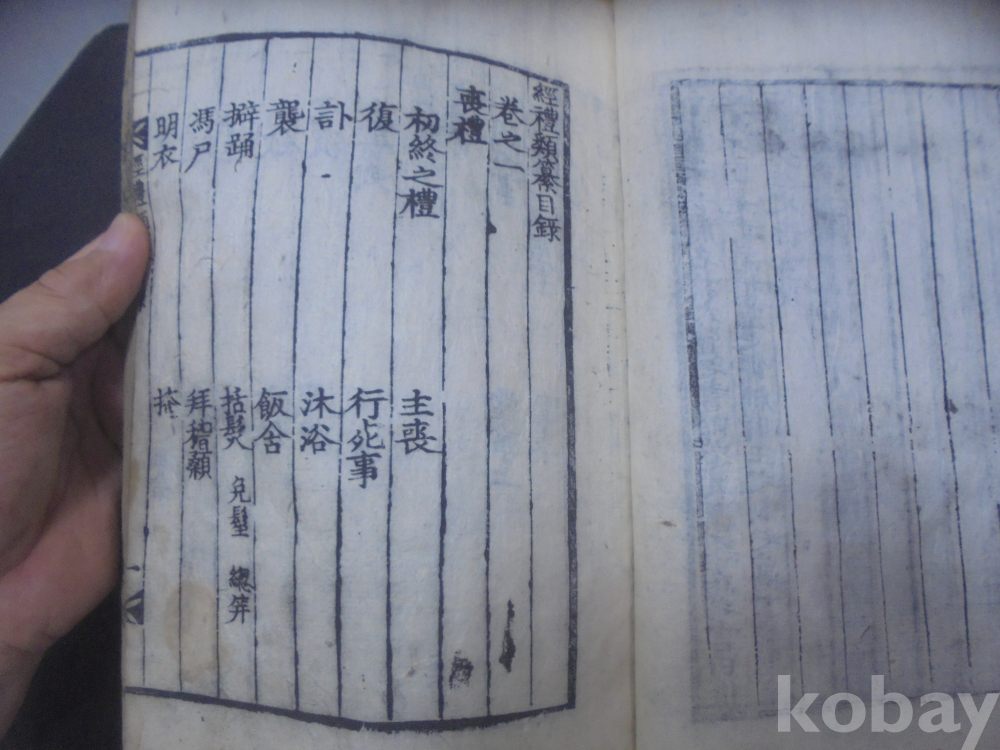 經禮類纂目錄
卷之一
喪禮
初終之禮 主喪
復 行死事
訃 沐浴
襲 飯含
擗踊 括髮 免髽 緫笄
馮尸 拜稽顙
明衣 掩
經禮
一
kobay